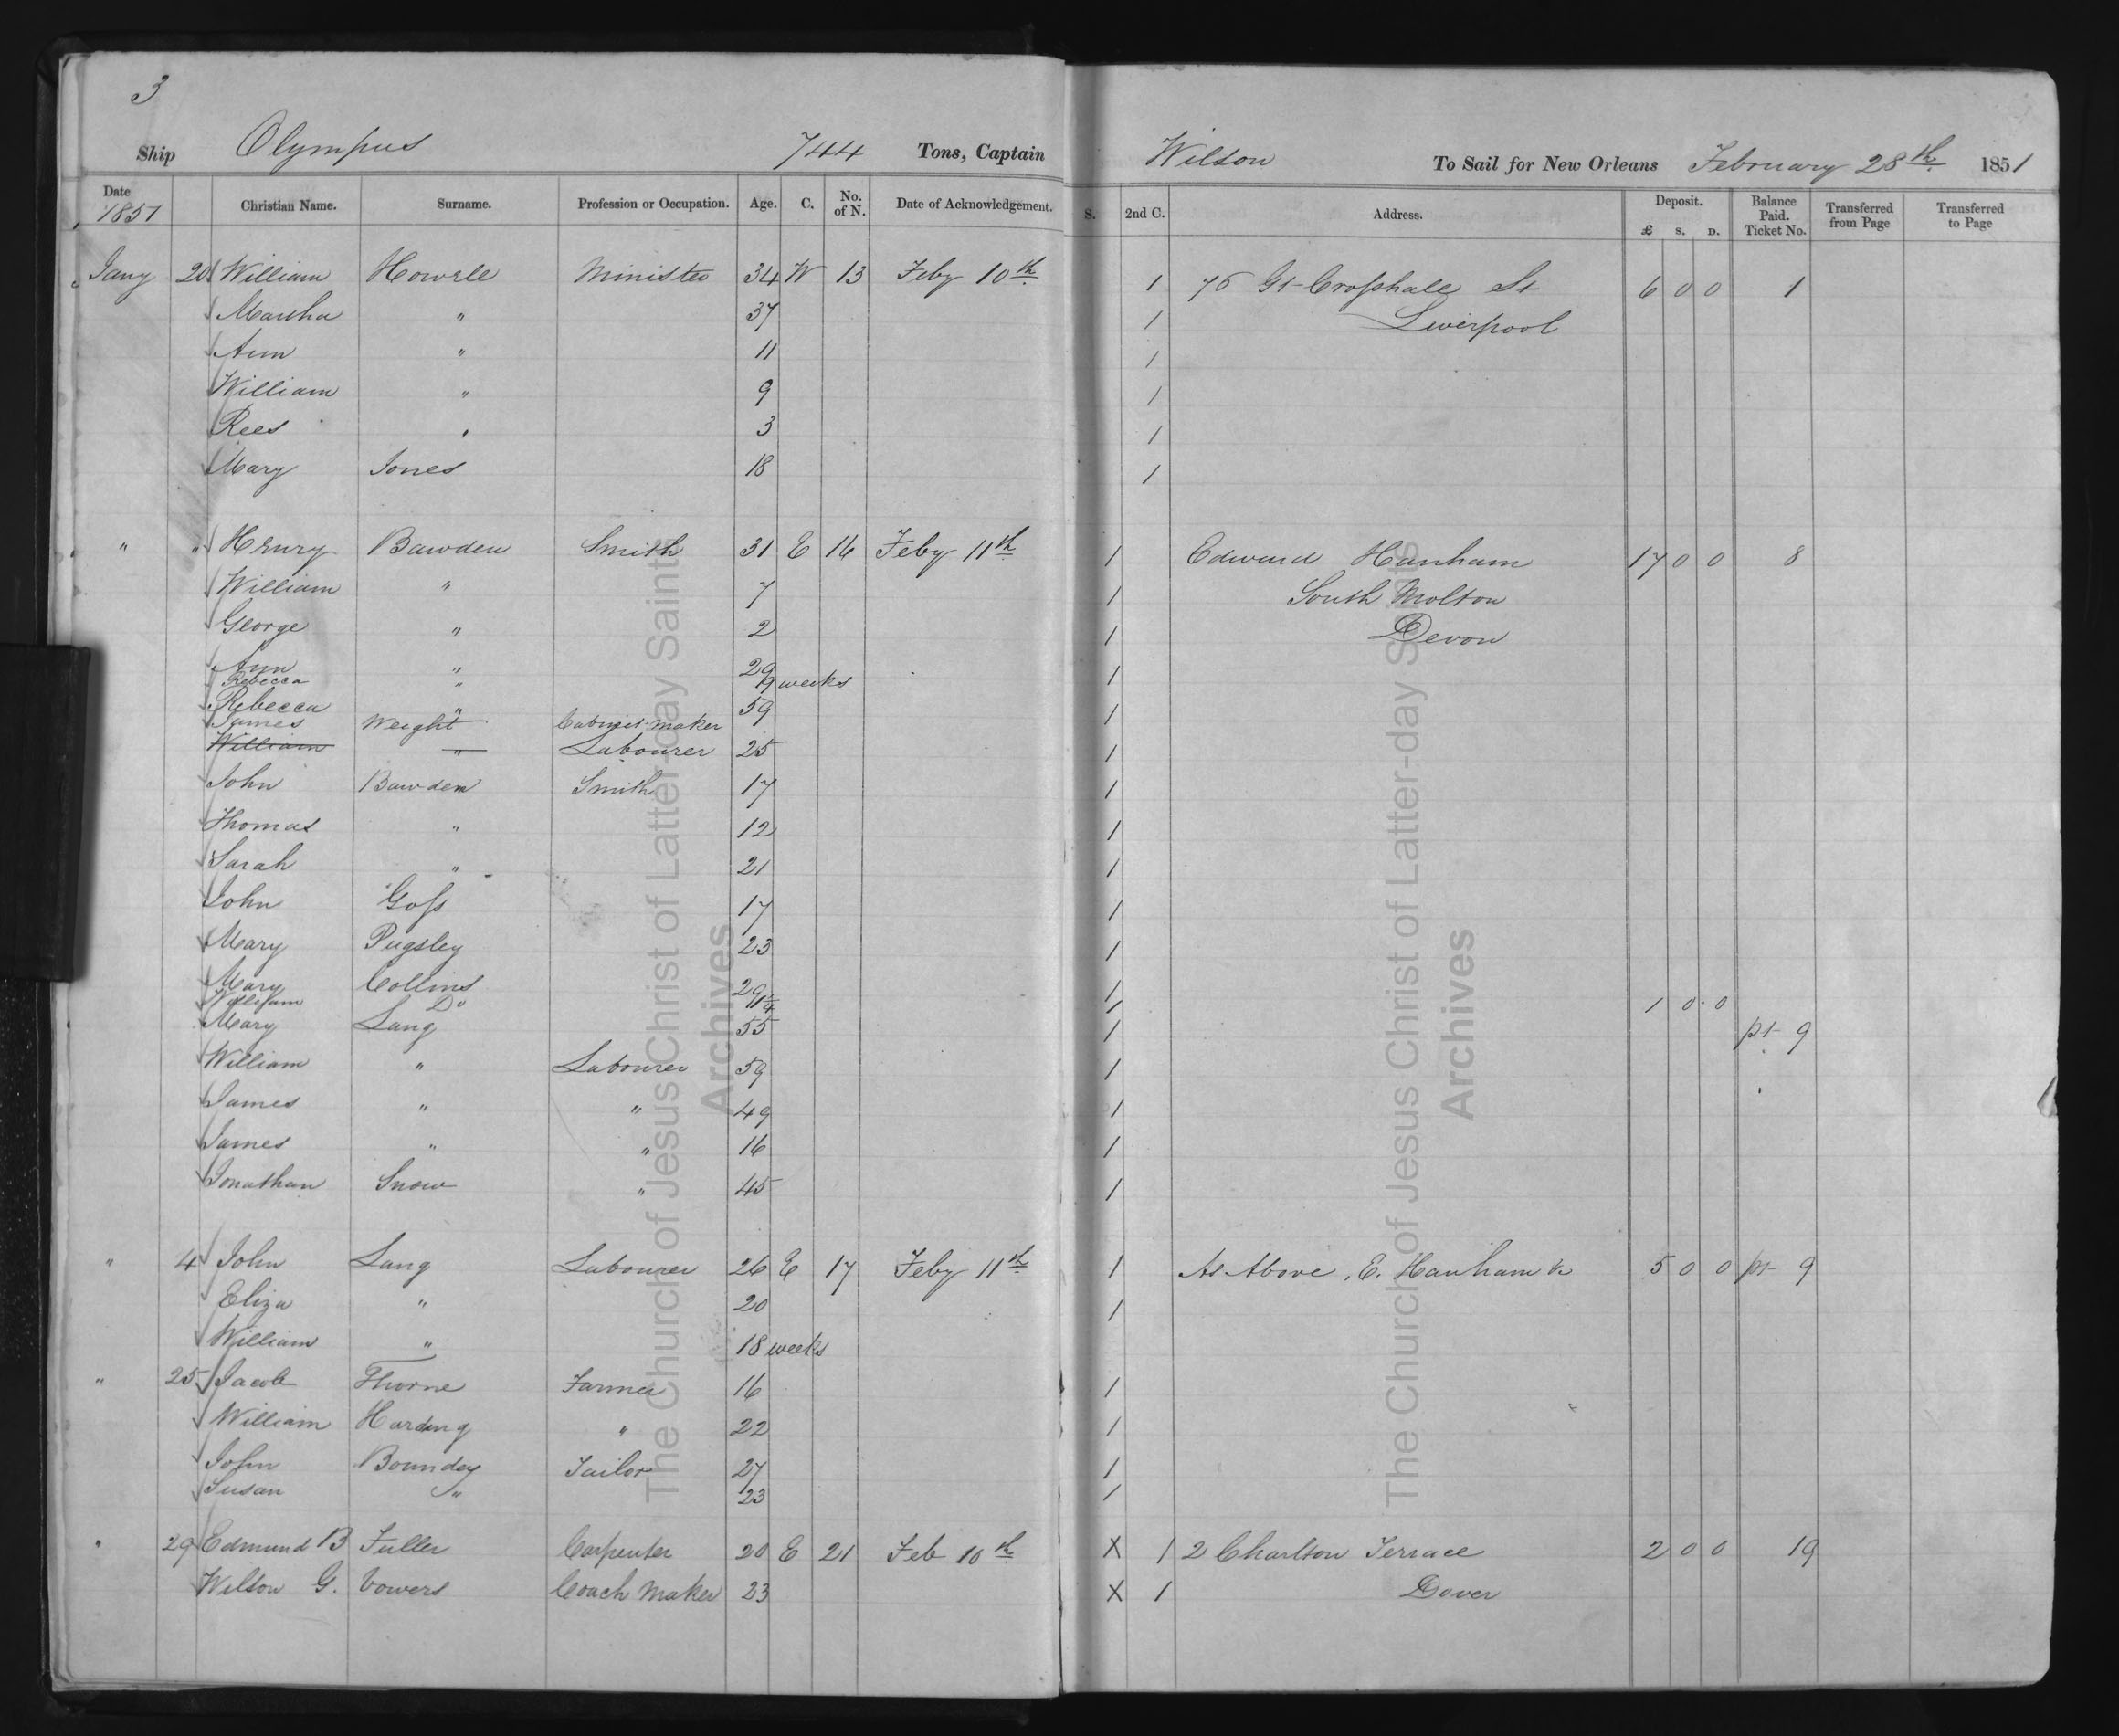 3
Ship Olympus 744 Tons, Captain Wilson To Sail for New Orleans February 28th 1851
Date 1851 Christian Name. Surname. Profession or Occupation. Age. C. No. of N. Date of Acknowledgement. S. 2nd C. Address. Deposit. £ S. D. Balance Paid. Ticket No. Transferred from Page Transferred to Page
Jany 20 William Howell Minister 34 W 13 Feby 10th 1 76 Gt Crosshall St 6 0 0 1
Martha " 37 1 Liverpool
Ann " 11 1
William " 9 1
Rees " 3 1
Mary Jones 18 1
" " Henry Bawden Smith 31 E 16 Feby 11th 1 Edward Hanham 17 0 0 8
William " 7 1 South Molton
George " 2 1 Devon
Ann " 29 1
Rebecca " 19 weeks
Rebecca " 59 1
James Weight Cabinet-maker
William " Labourer 25 1
John Bawden Smith 17 1
Thomas " 12 1
Sarah " 21 1
John Goss 17 1
Mary Pugsley 23 1
Mary Collins 29 1
William Do 1 1/4 1 1 0 0
Mary Lang 55 1 pt 9
William " Labourer 59 1
James " " 49 1
James " " 16 1
Jonathan Snow " 45 1
" 4 John Lang Labourer 26 E 17 Feby 11th 1 As Above, E. Hanham 5 0 0 pt 9
Eliza " 20 1
William " 18 weeks
" 25 Jacob Thorne Farmer 16 1
William Harding " 22 1
John Boundey Tailor 27 1
Susan " 23 1
" 29 Edmund B Fuller Carpenter 20 E 21 Feb 10th X 1 2 Charlton Terrace 2 0 0 19
Wilson G. Vowers Coach Maker 23 X 1 Dover
The Church of Jesus Christ of Latter-day Saints
Archives
The Church of Jesus Christ of Latter-day Saints
Archives